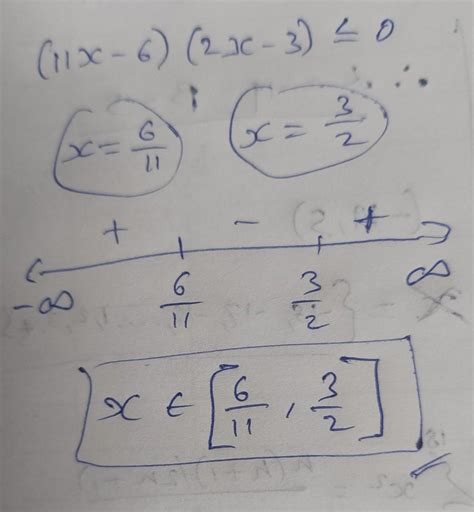 (11x-6) (2x-3) ≤ 0
x = 6/11 x = 3/2
+ - +
-∞ 6/11 3/2 ∞
x ∈ [6/11, 3/2]